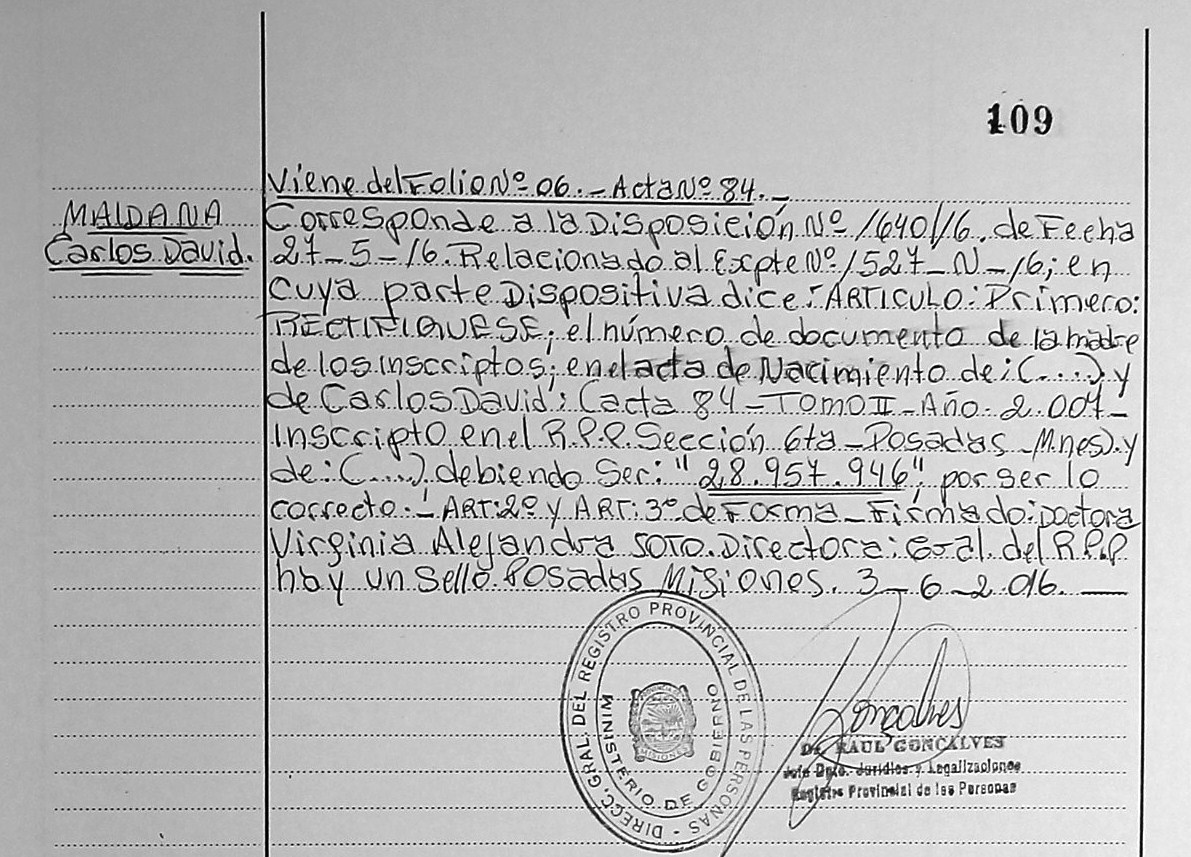 109
Viene del Folio Nº 06._ Acta Nº 84._
MALDANA
Carlos David.
Corresponde a la Disposición Nº 1640/16. de Fecha
27-5-16. Relacionado al Expte Nº 1527-N-16; en
cuya parte Dispositiva dice: ARTICULO: Primero:
RECTIFIQUESE; el número de documento de la madre
de los inscriptos; en el acta de Nacimiento de: (....) y
de Carlos David; (acta 84-TOMO II-Año 2.007-
inscripto en el R.P.P. Sección 6ta-Posadas Mnes). y
de: (....). debiendo Ser: "28.957.946"; por ser lo
correcto.- ART: 2º y ART: 3º de Forma-Firmado: Doctora
Virginia Alejandra SOTO. Directora: Gral. del R.P.P
hay un Sello. Posadas Misiones. 3-6-2.016.
DIRECC. GRAL. DEL REGISTRO PROVINCIAL DE LAS PERSONAS -
MINISTERIO DE GOBIERNO
MISIONES
Goncalves
Dr. RAUL GONCALVES
Jefe Dpto. Jurídico y Legalizaciones
Registro Provincial de las Personas